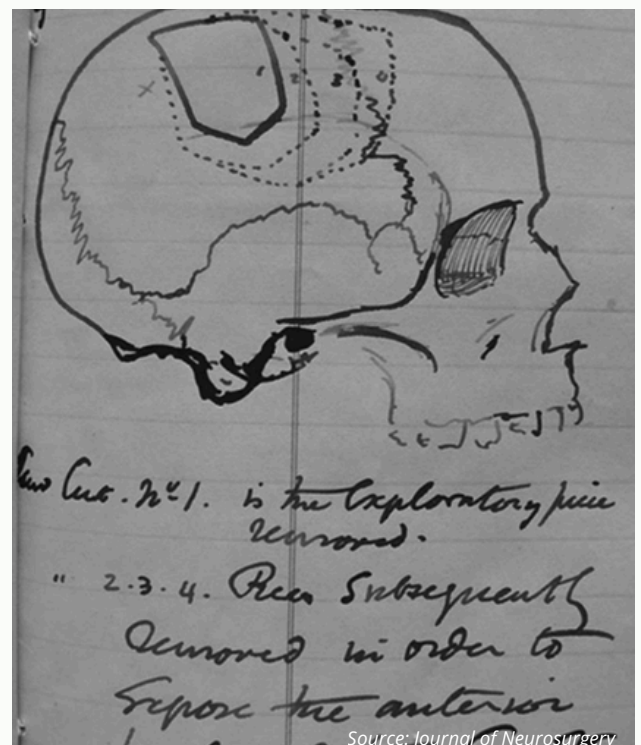 1 2 3
Saw Cut. No 1. is the Exploratory piece
removed.
" 2. 3. 4. Pieces Subsequently
removed in order to
expose the anterior
Source: Journal of Neurosurgery